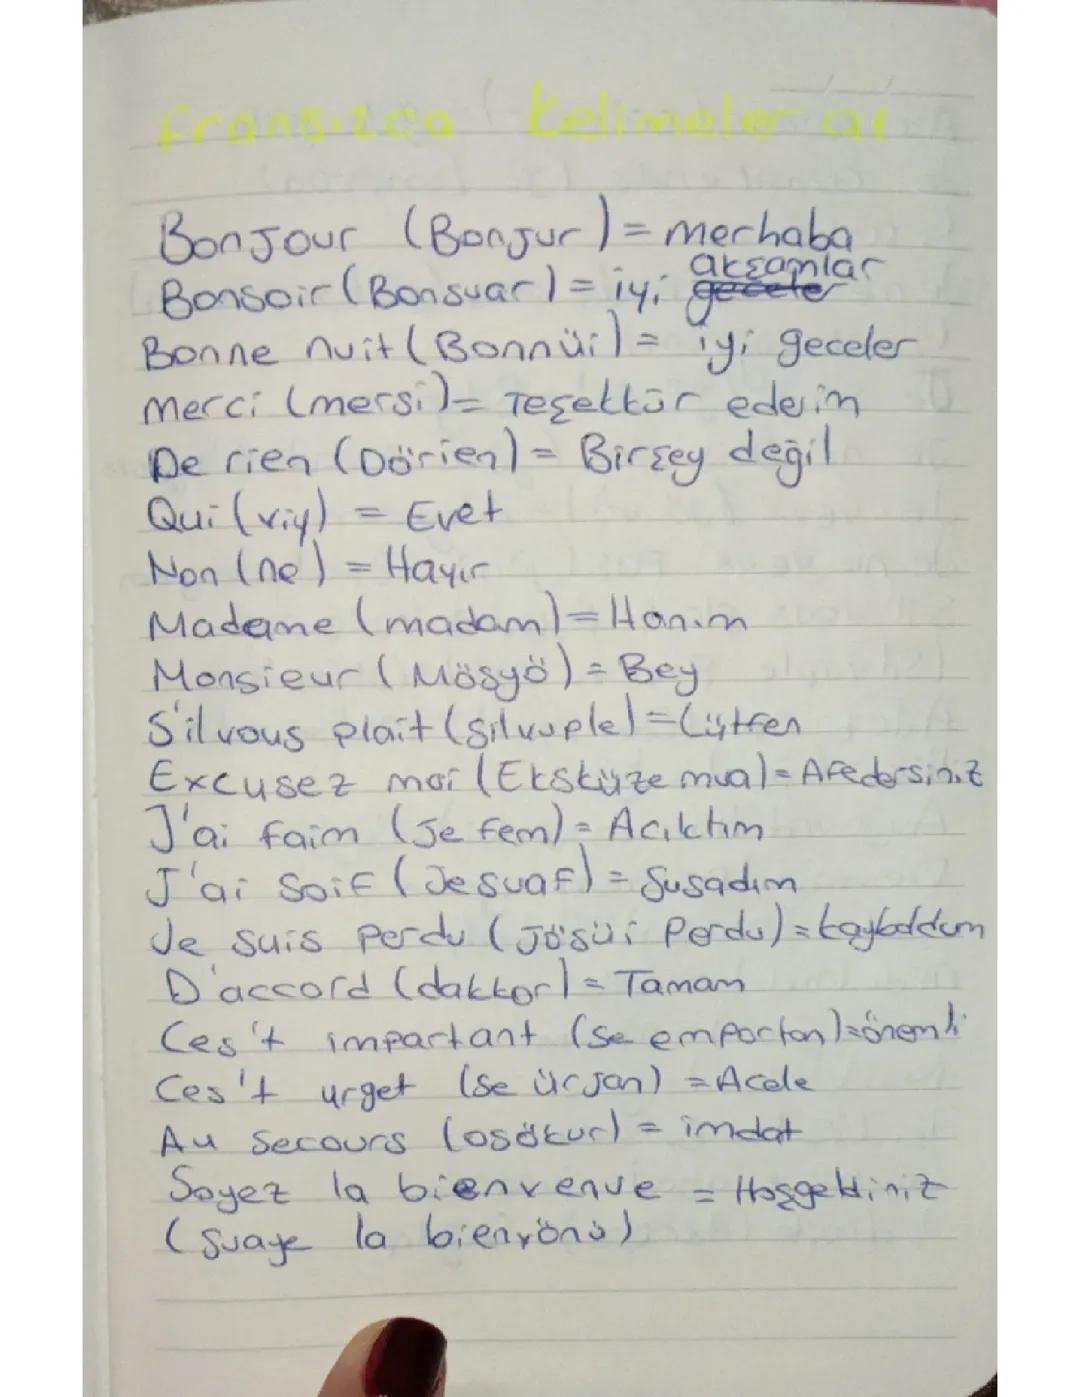 fransızca kelimeler
Bonjour (Bonjur) = merhaba
akşamlar
Bonsoir (Bonsuar) = iyi geceler
Bonne nuit (Bonnüi) = iyi geceler
Merci (mersi) = Teşekkür ederim
De rien (Dörien) = Birşey değil
Qui (viy) = Evet
Non (ne) = Hayır
Madame (madam) = Hanım
Monsieur (Mösyö) = Bey
S'il vous plait (silvuple) = Lütfen
Excusez moi (Eksküze mua) = Afedersiniz
J'ai faim (Je fem) = Acıktım
J'ai Soif (Jesuaf) = Susadım
Je suis perdu (Jösüi Perdu) = kayboldum
D'accord (dakkor) = Tamam
Ces't impartant (Se emportan) = önemli
Ces't urget (Se ürjan) = Acele
Au Secours (osökur) = imdat
Soyez la bienvenue = Hoşgeldiniz
(Suaye la bienvönü)